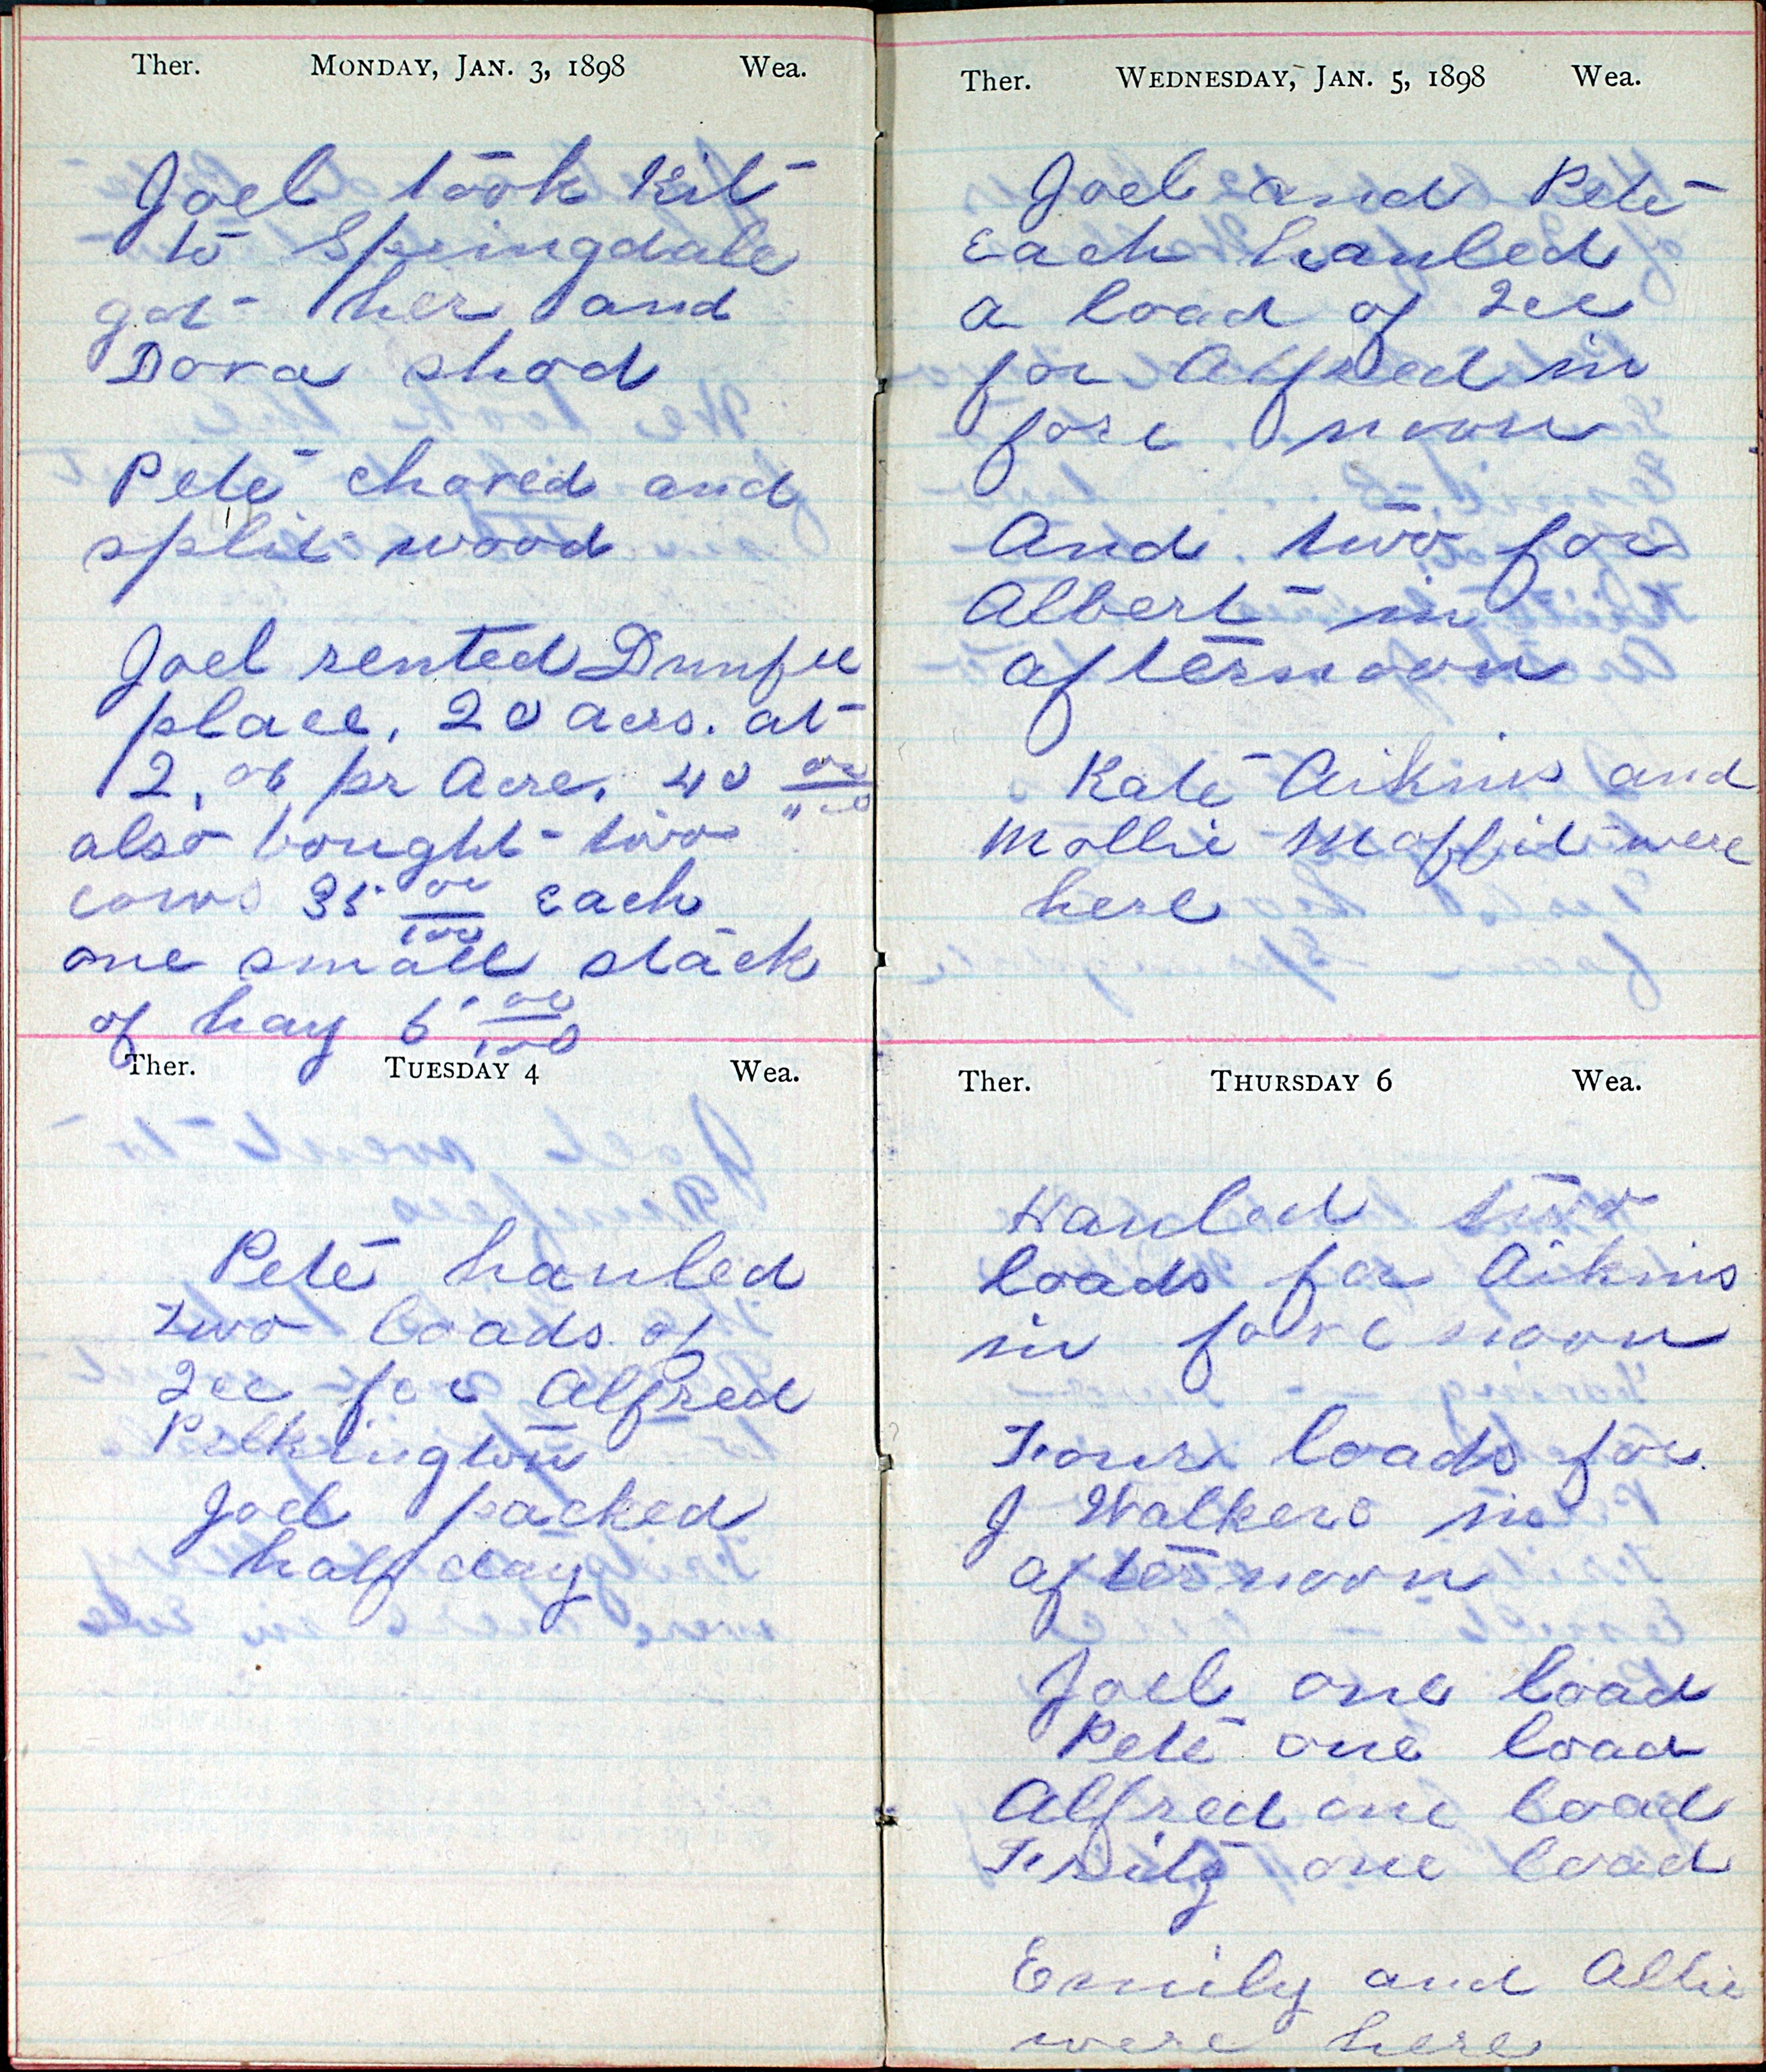 Ther. MONDAY, JAN. 3, 1898 Wea.
Joel took Kit
to Springdale
got her and
Dora shod
Pete chored and
split wood
Joel rented Dunfee
place, 20 acrs. at
2,00 pr Acre, 40 00/100
also bought two
cows 35 00/100 Each
one small stack
of hay 6 00/100
Ther. TUESDAY 4 Wea.
Pete hauled
two loads of
Ice for Alfred
Pilkington
Joel packed
half day
Ther. WEDNESDAY, JAN. 5, 1898 Wea.
Joel and Pete
Each hauled
a load of Ice
for Alfred in
fore noon
And two for
Albert in
afternoon
Kate Aikins and
Mollie Maffit were
here
Ther. THURSDAY 6 Wea.
Hauled two
loads for Aikins
in forenoon
Four loads for
J Walkers in
afternoon
Joel one load
Pete one load
Alfred one load
Fritz one load
Emily and Allie
were here